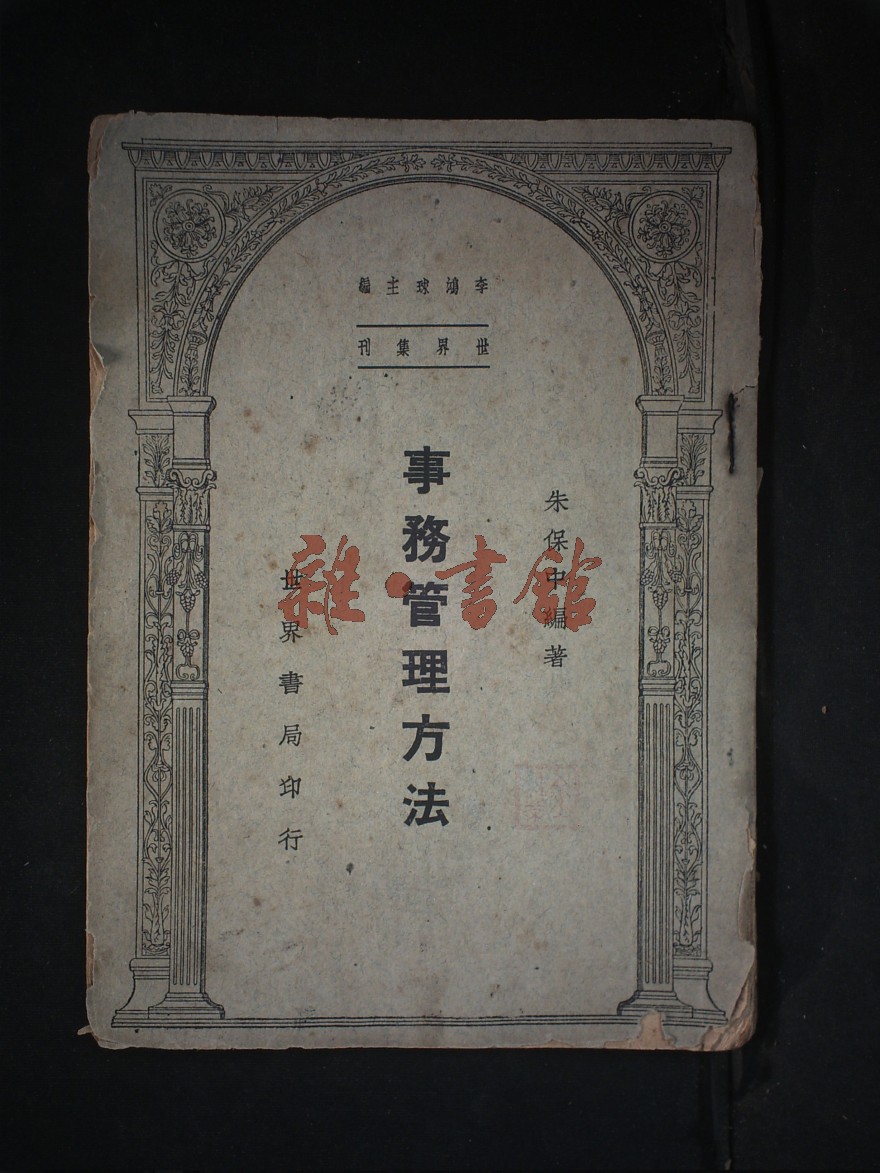 李鴻球主編
世界集刊
朱保中編著
事務管理方法
世界書局印行
雜·書館